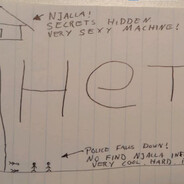 NJALLA!
SECRETS HIDDEN
VERY SEXY MACHINE!
HeT
POLICE FALLS DOWN!
NO FIND NJALLA
VERY COOL. HARD